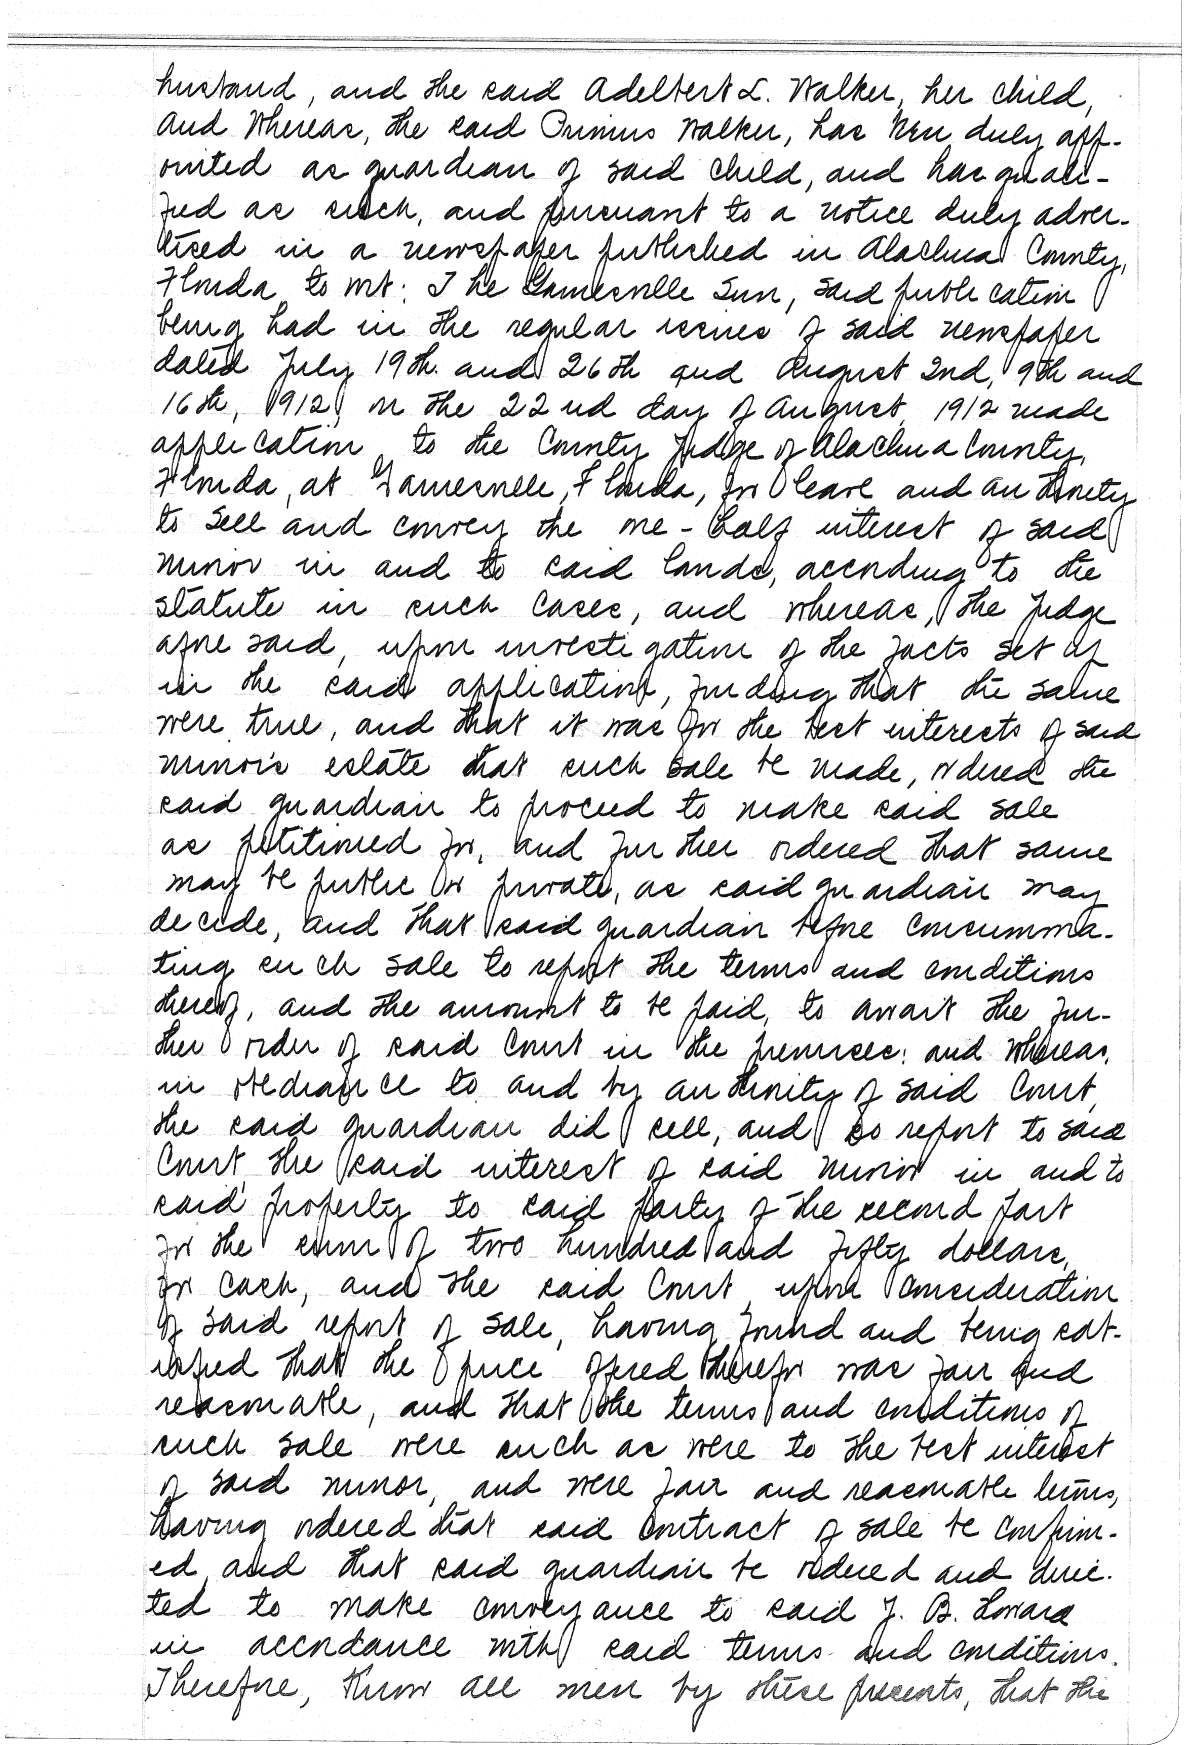 husband, and the said Adelbert L. Walker, her child,
And Whereas, the said Primus Walker, has been duly app-
ointed as guardian of said child, and has quali-
fied as such, and pursuant to a notice duly adver-
tised in a newspaper published in Alachua County,
Florida, to wit: The Gainesville Sun, said publication
being had in the regular issues of said newspaper
dated July 19th. and 26th and August 2nd, 9th and
16th, 1912, on the 22nd day of August, 1912 made
application to the County Judge of Alachua County,
Florida, at Gainesville, Florida, for leave and authority
to sell and convey the one-half interest of said
minor in and to said lands, according to the
statute in such cases, and whereas, the Judge
afore said, upon investigation of the facts set up
in the said application, finding that the same
were true, and that it was for the best interests of said
minor's estate that such sale be made, ordered the
said guardian to proceed to make said sale
as petitioned for, and further ordered that same
may be public or private, as said guardian may
decide, and that said guardian before consumma-
ting such sale to report the terms and conditions
thereof, and the amount to be paid, to await the fur-
ther order of said Court in the premises: and Whereas,
in obediance to and by authority of said Court,
the said guardian did sell, and so report to said
Court, the said interest of said minor in and to
said property to said party of the second part
for the sum of two hundred and fifty dollars,
for cash, and the said Court, upon consideration
of said report of sale, having found and being sat-
isfied that the price offered therefor was fair and
reasonable, and that the terms and conditions of
such sale were such as were to the best interest
of said minor, and were fair and reasonable terms,
having ordered that said contract of sale be confirm-
ed, and that said guardian be ordered and direc-
ted to make conveyance to said J. B.
in accordance with said terms and conditions.
Therefore, Know all men by these presents, that the